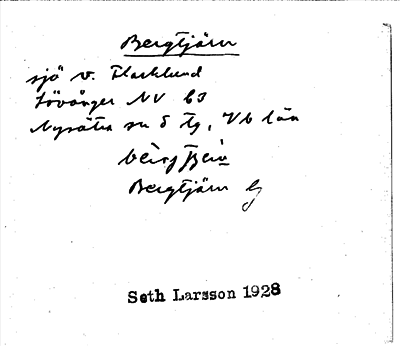 Bergtjärn
sjö v. Flarklund
Lövånger NV b3
Nysätra sn o tg, Vb län
Bergtjärn
Seth Larsson 1928